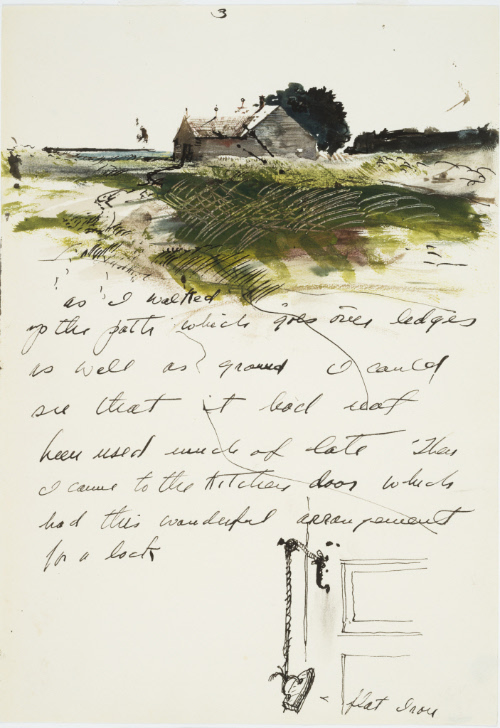 3
as I walked
up the path which goes over ledges
as well as ground I could
see that it had not
been used much of late Then
I came to the Kitchen door which
had this wonderful arrangement
for a lock
Flat Iron